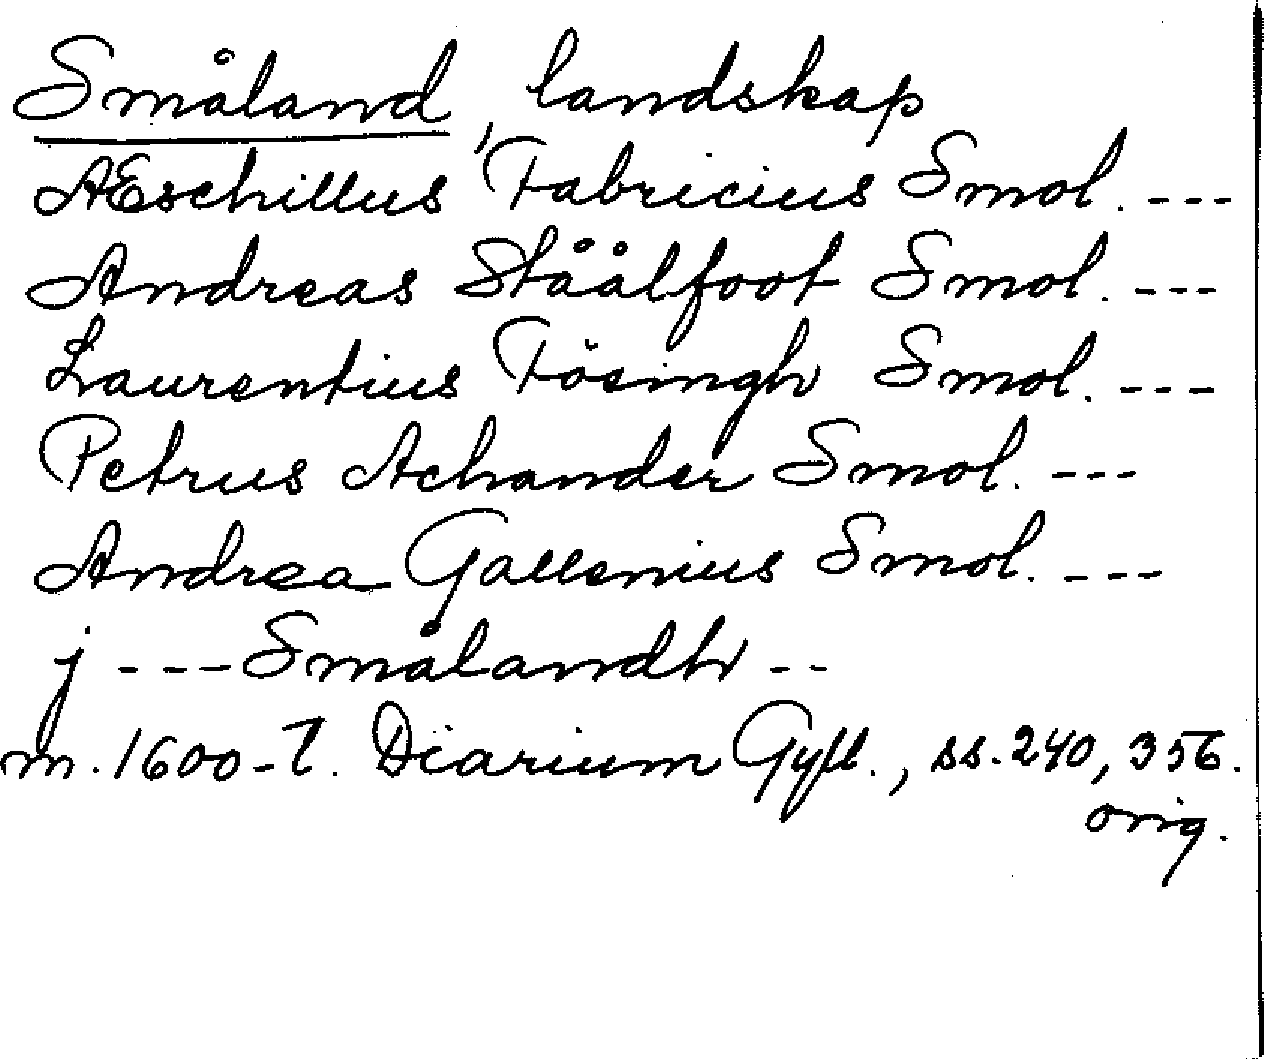 Småland, landskap
AEschillus Fabricius Smol. ---
Andreas Ståålfoot Smol. ---
Laurentius Fösingh Smol. ---
Petrus Achander Smol. ---
Andrea Gallenius Smol. ---
j --- Smålandh --
m. 1600-t. Diarium Gyll., ss. 240, 356.
orig.